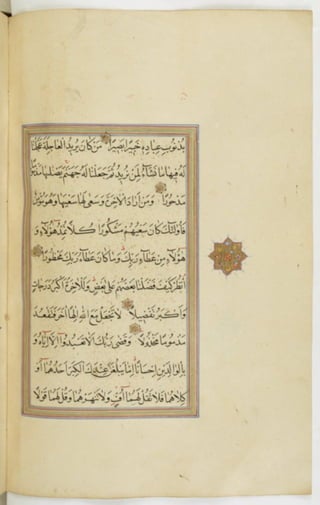 بِذُنُوبِ عِبَادِهِ خَبِيرًا بَصِيرًا مَنْ كَانَ يُرِيدُ الْعَاجِلَةَ عَجَّلْنَا
لَهُ فِيهَا مَا نَشَاءُ لِمَنْ نُرِيدُ ثُمَّ جَعَلْنَا لَهُ جَهَنَّمَ يَصْلَيهَا مَذْمُومًا
مَدْحُورًا وَمَنْ أَرَادَ الْآخِرَةَ وَسَعَى لَهَا سَعْيَهَا وَهُوَ مُؤْمِنٌ
فَأُولَئِكَ كَانَ سَعْيُهُمْ مَشْكُورًا كُلًّا نُمِدُّ هَؤُلَاءِ وَ
هَؤُلَاءِ مِنْ عَطَاءِ رَبِّكَ وَمَا كَانَ عَطَاءُ رَبِّكَ مَحْظُورًا
أُنْظُرْ كَيْفَ فَضَّلْنَا بَعْضَهُمْ عَلَى بَعْضٍ وَلَلْآخِرَةُ أَكْبَرُ دَرَجَاتٍ
وَأَكْبَرُ تَفْضِيلًا لَا تَجْعَلْ مَعَ اللَّهِ إِلَهًا آخَرَ فَتَقْعُدَ
مَذْمُومًا مَخْذُولًا وَقَضَى رَبُّكَ أَلَّا تَعْبُدُوا إِلَّا إِيَّاهُ وَ
بِالْوَالِدَيْنِ إِحْسَانًا إِمَّا يَبْلُغَنَّ عِنْدَكَ الْكِبَرَ أَحَدُهُمَا أَوْ
كِلَاهُمَا فَلَا تَقُلْ لَهُمَا أُفٍّ وَلَا تَنْهَرْهُمَا وَقُلْ لَهُمَا قَوْلًا